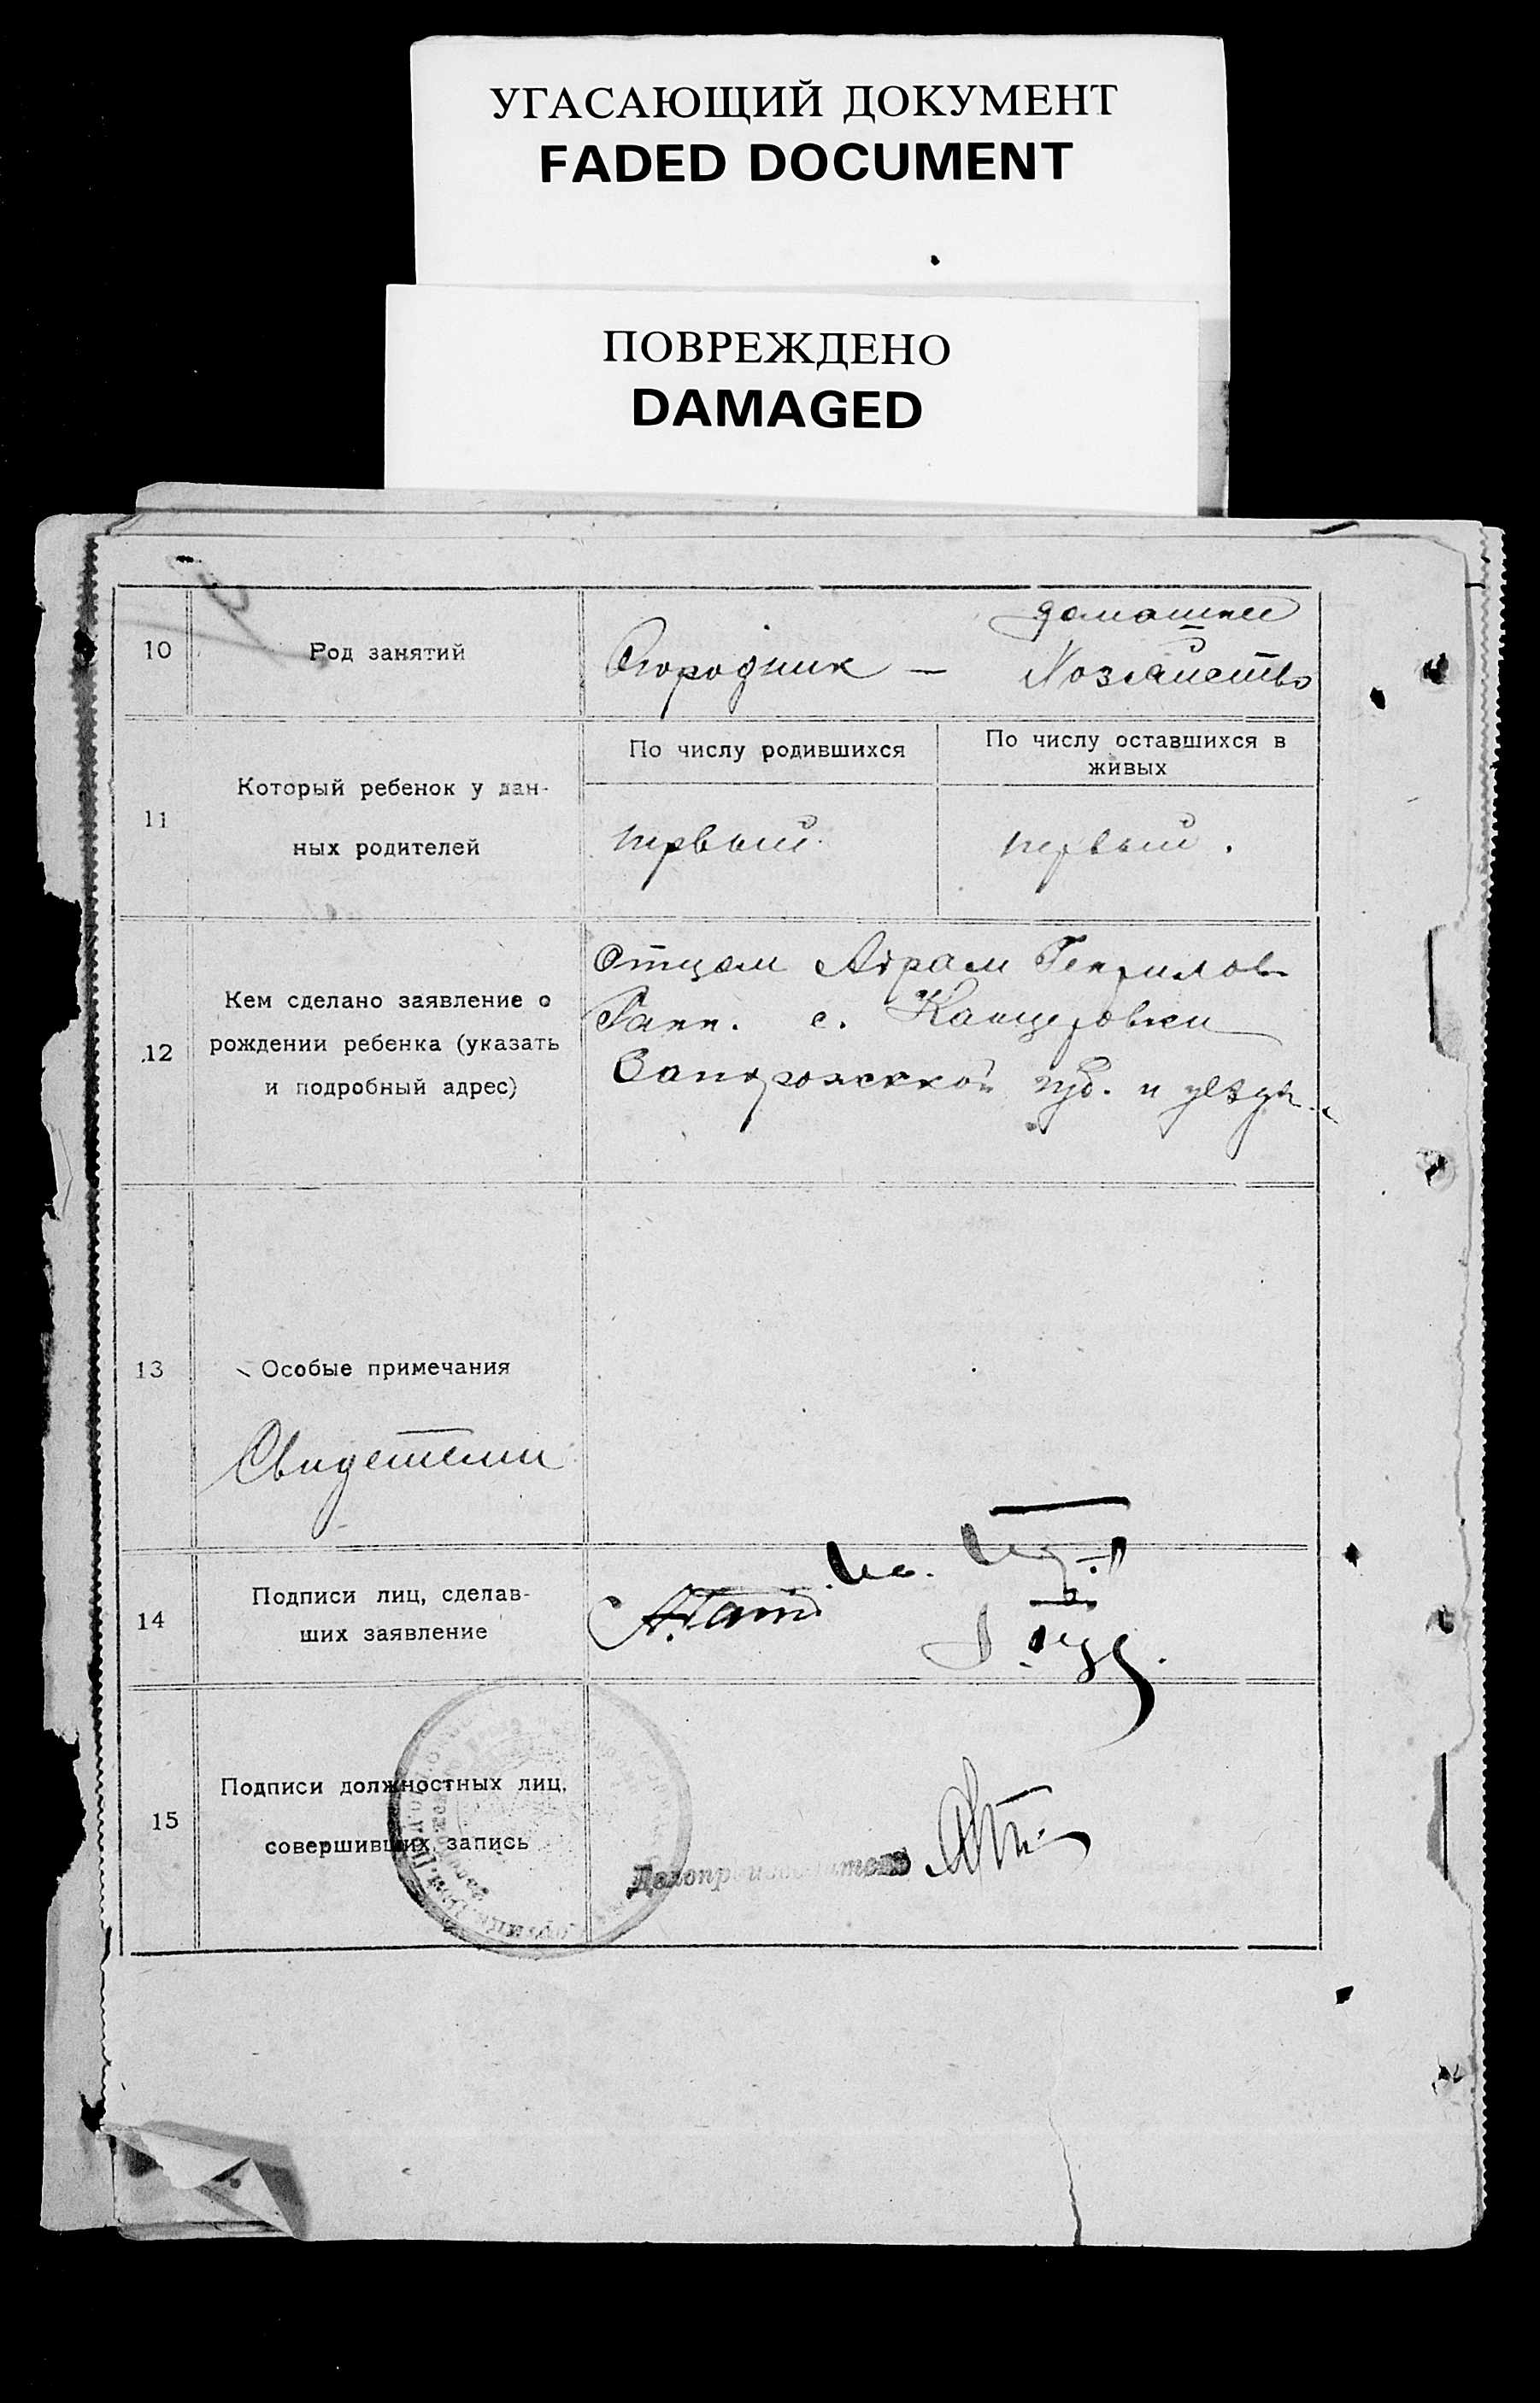 УГАСАЮЩИЙ ДОКУМЕНТ
FADED DOCUMENT
ПОВРЕЖДЕНО
DAMAGED
10
Род занятий
Огородник —
домашнее
Хозяйство
11
Который ребенок у дан-
ных родителей
По числу родившихся
По числу оставшихся в
живых
первый
первый.
12
Кем сделано заявление о
рождении ребенка (указать
и подробный адрес)
Отцом Абрам
с. Канцеровки
Запорожской губ. и уезда
13
Особые примечания
Свидетели
14
Подписи лиц, сделав-
ших заявление
15
Подписи должностных лиц,
совершивших запись
Делопроизводитель